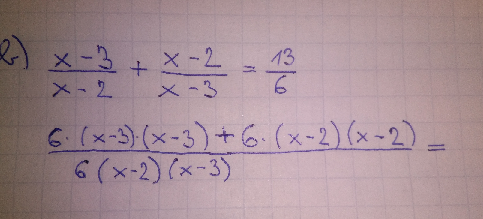 b) x-3/x-2 + x-2/x-3 = 13/6
6·(x-3)·(x-3) + 6·(x-2)(x-2)/6(x-2)(x-3) =